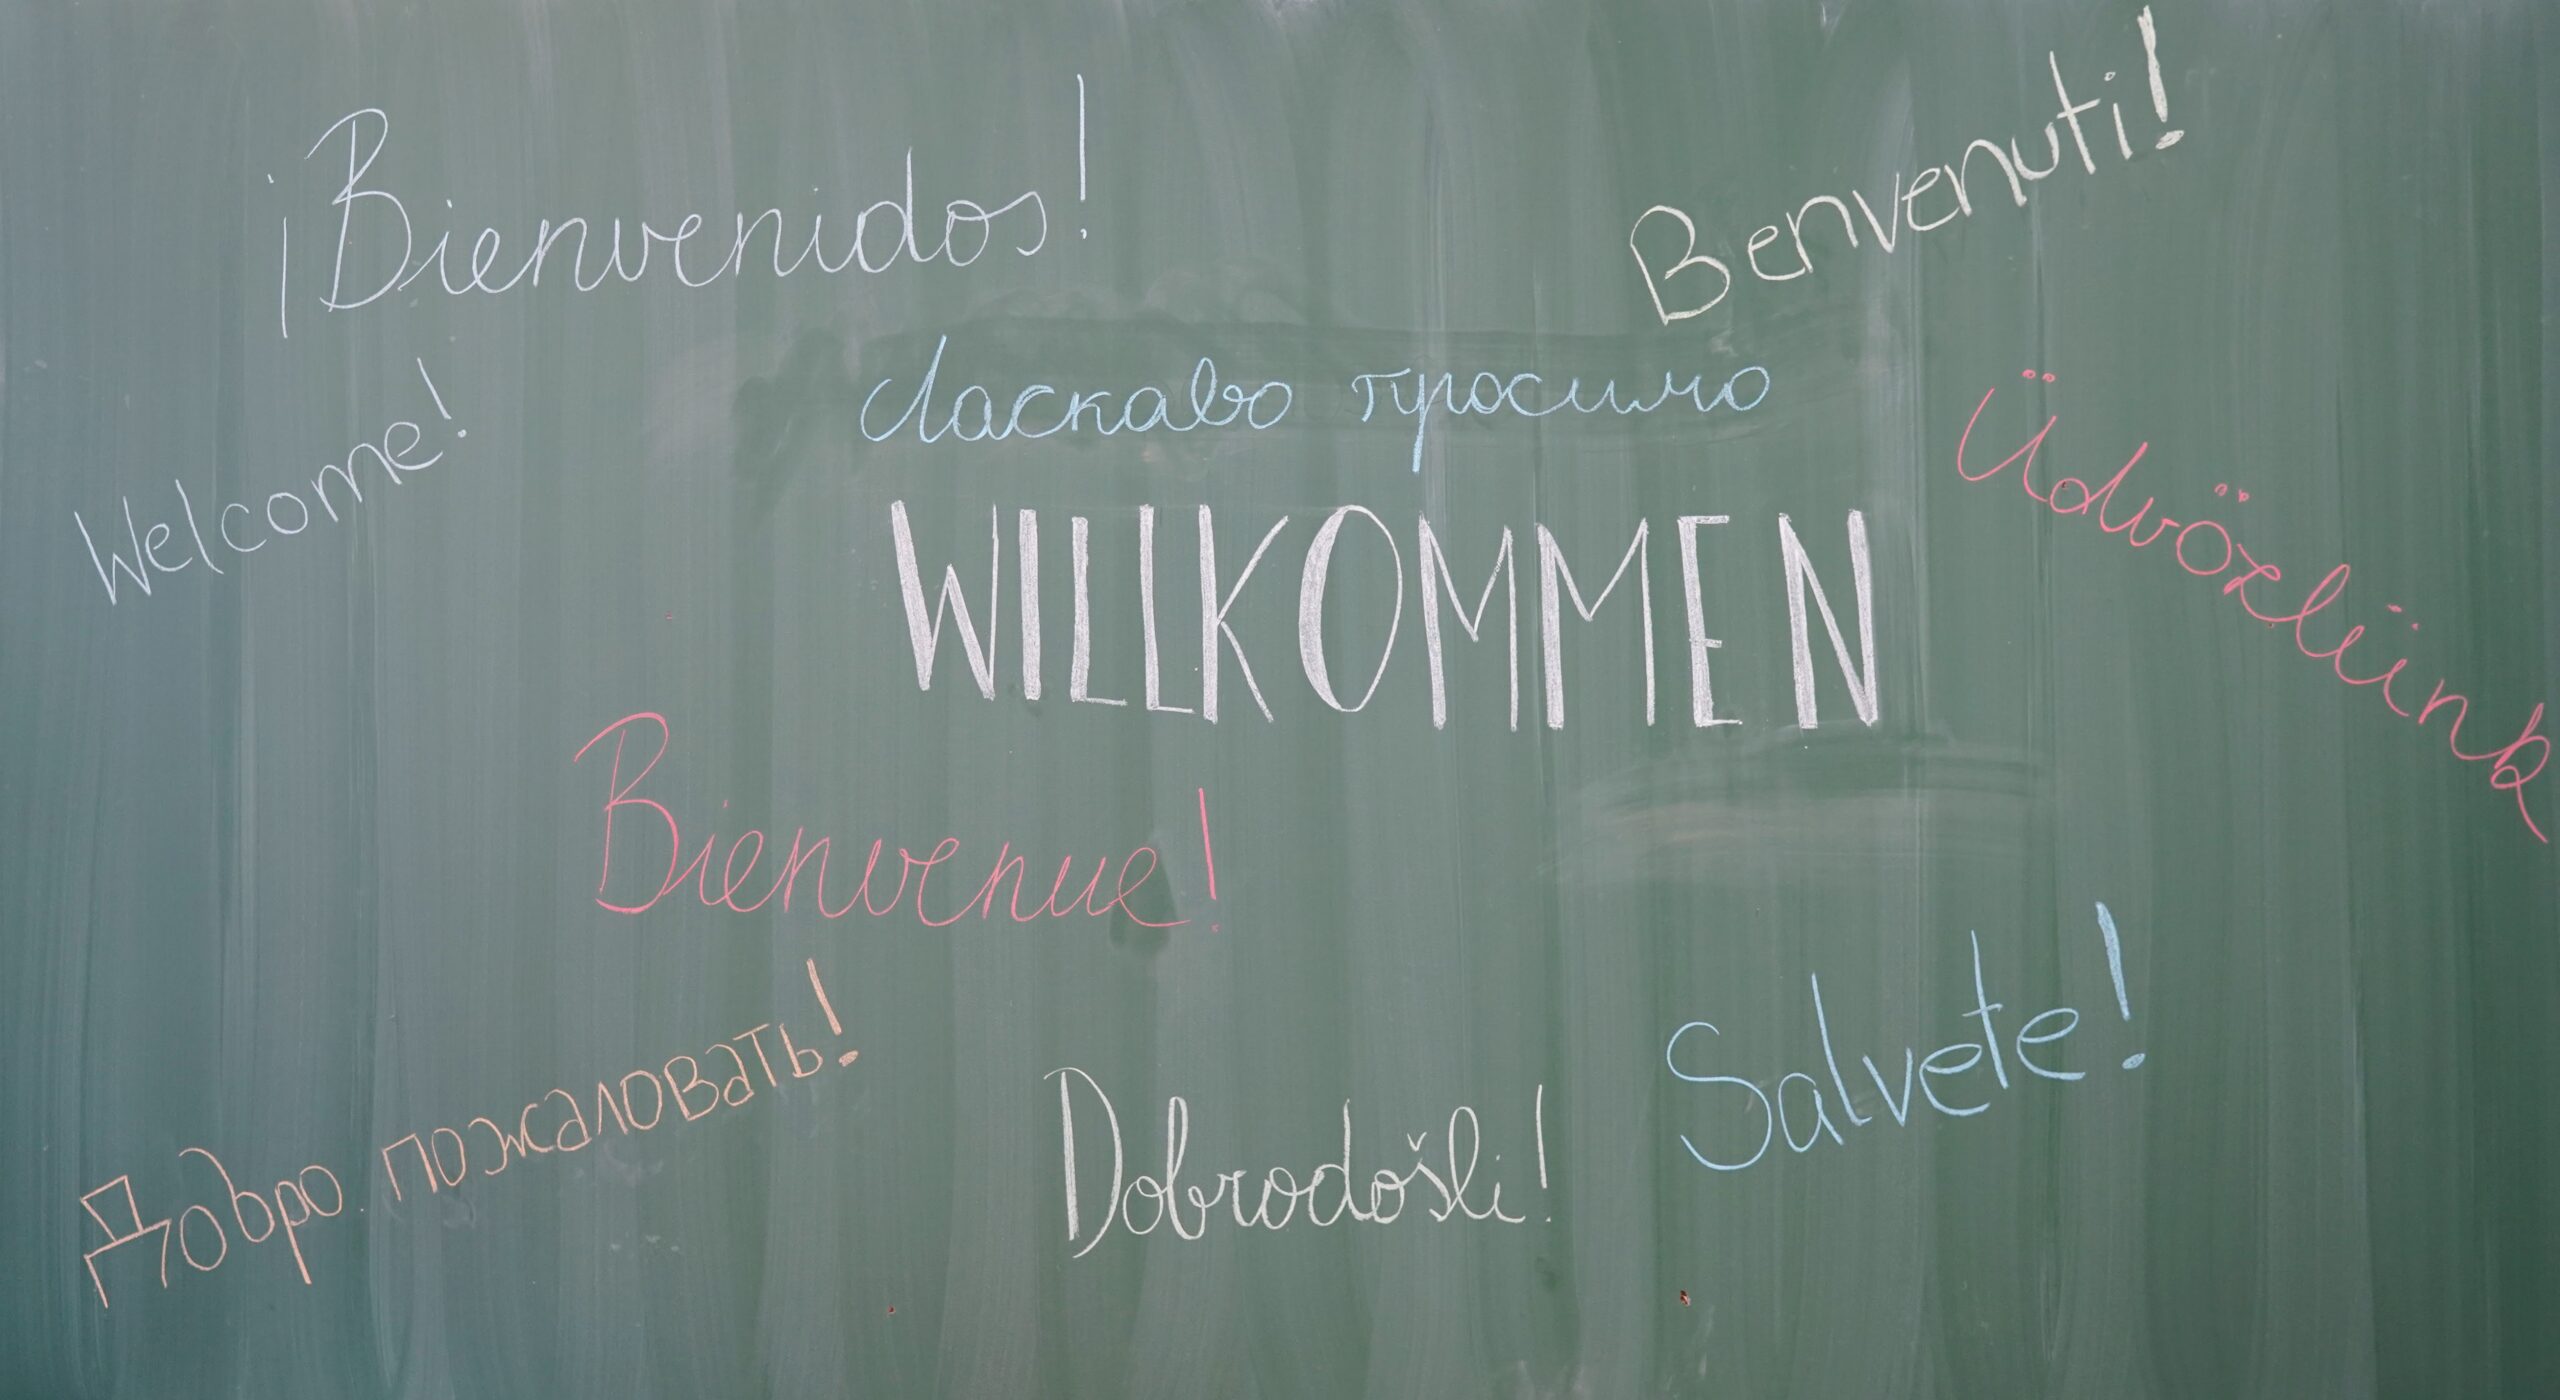 ¡Bienvenidos!
Benvenuti!
Welcome!
Ласкаво просимо
Üdvözlünk
WILLKOMMEN
Bienvenue!
Salvete!
Добро пожаловать!
Dobrodošli!